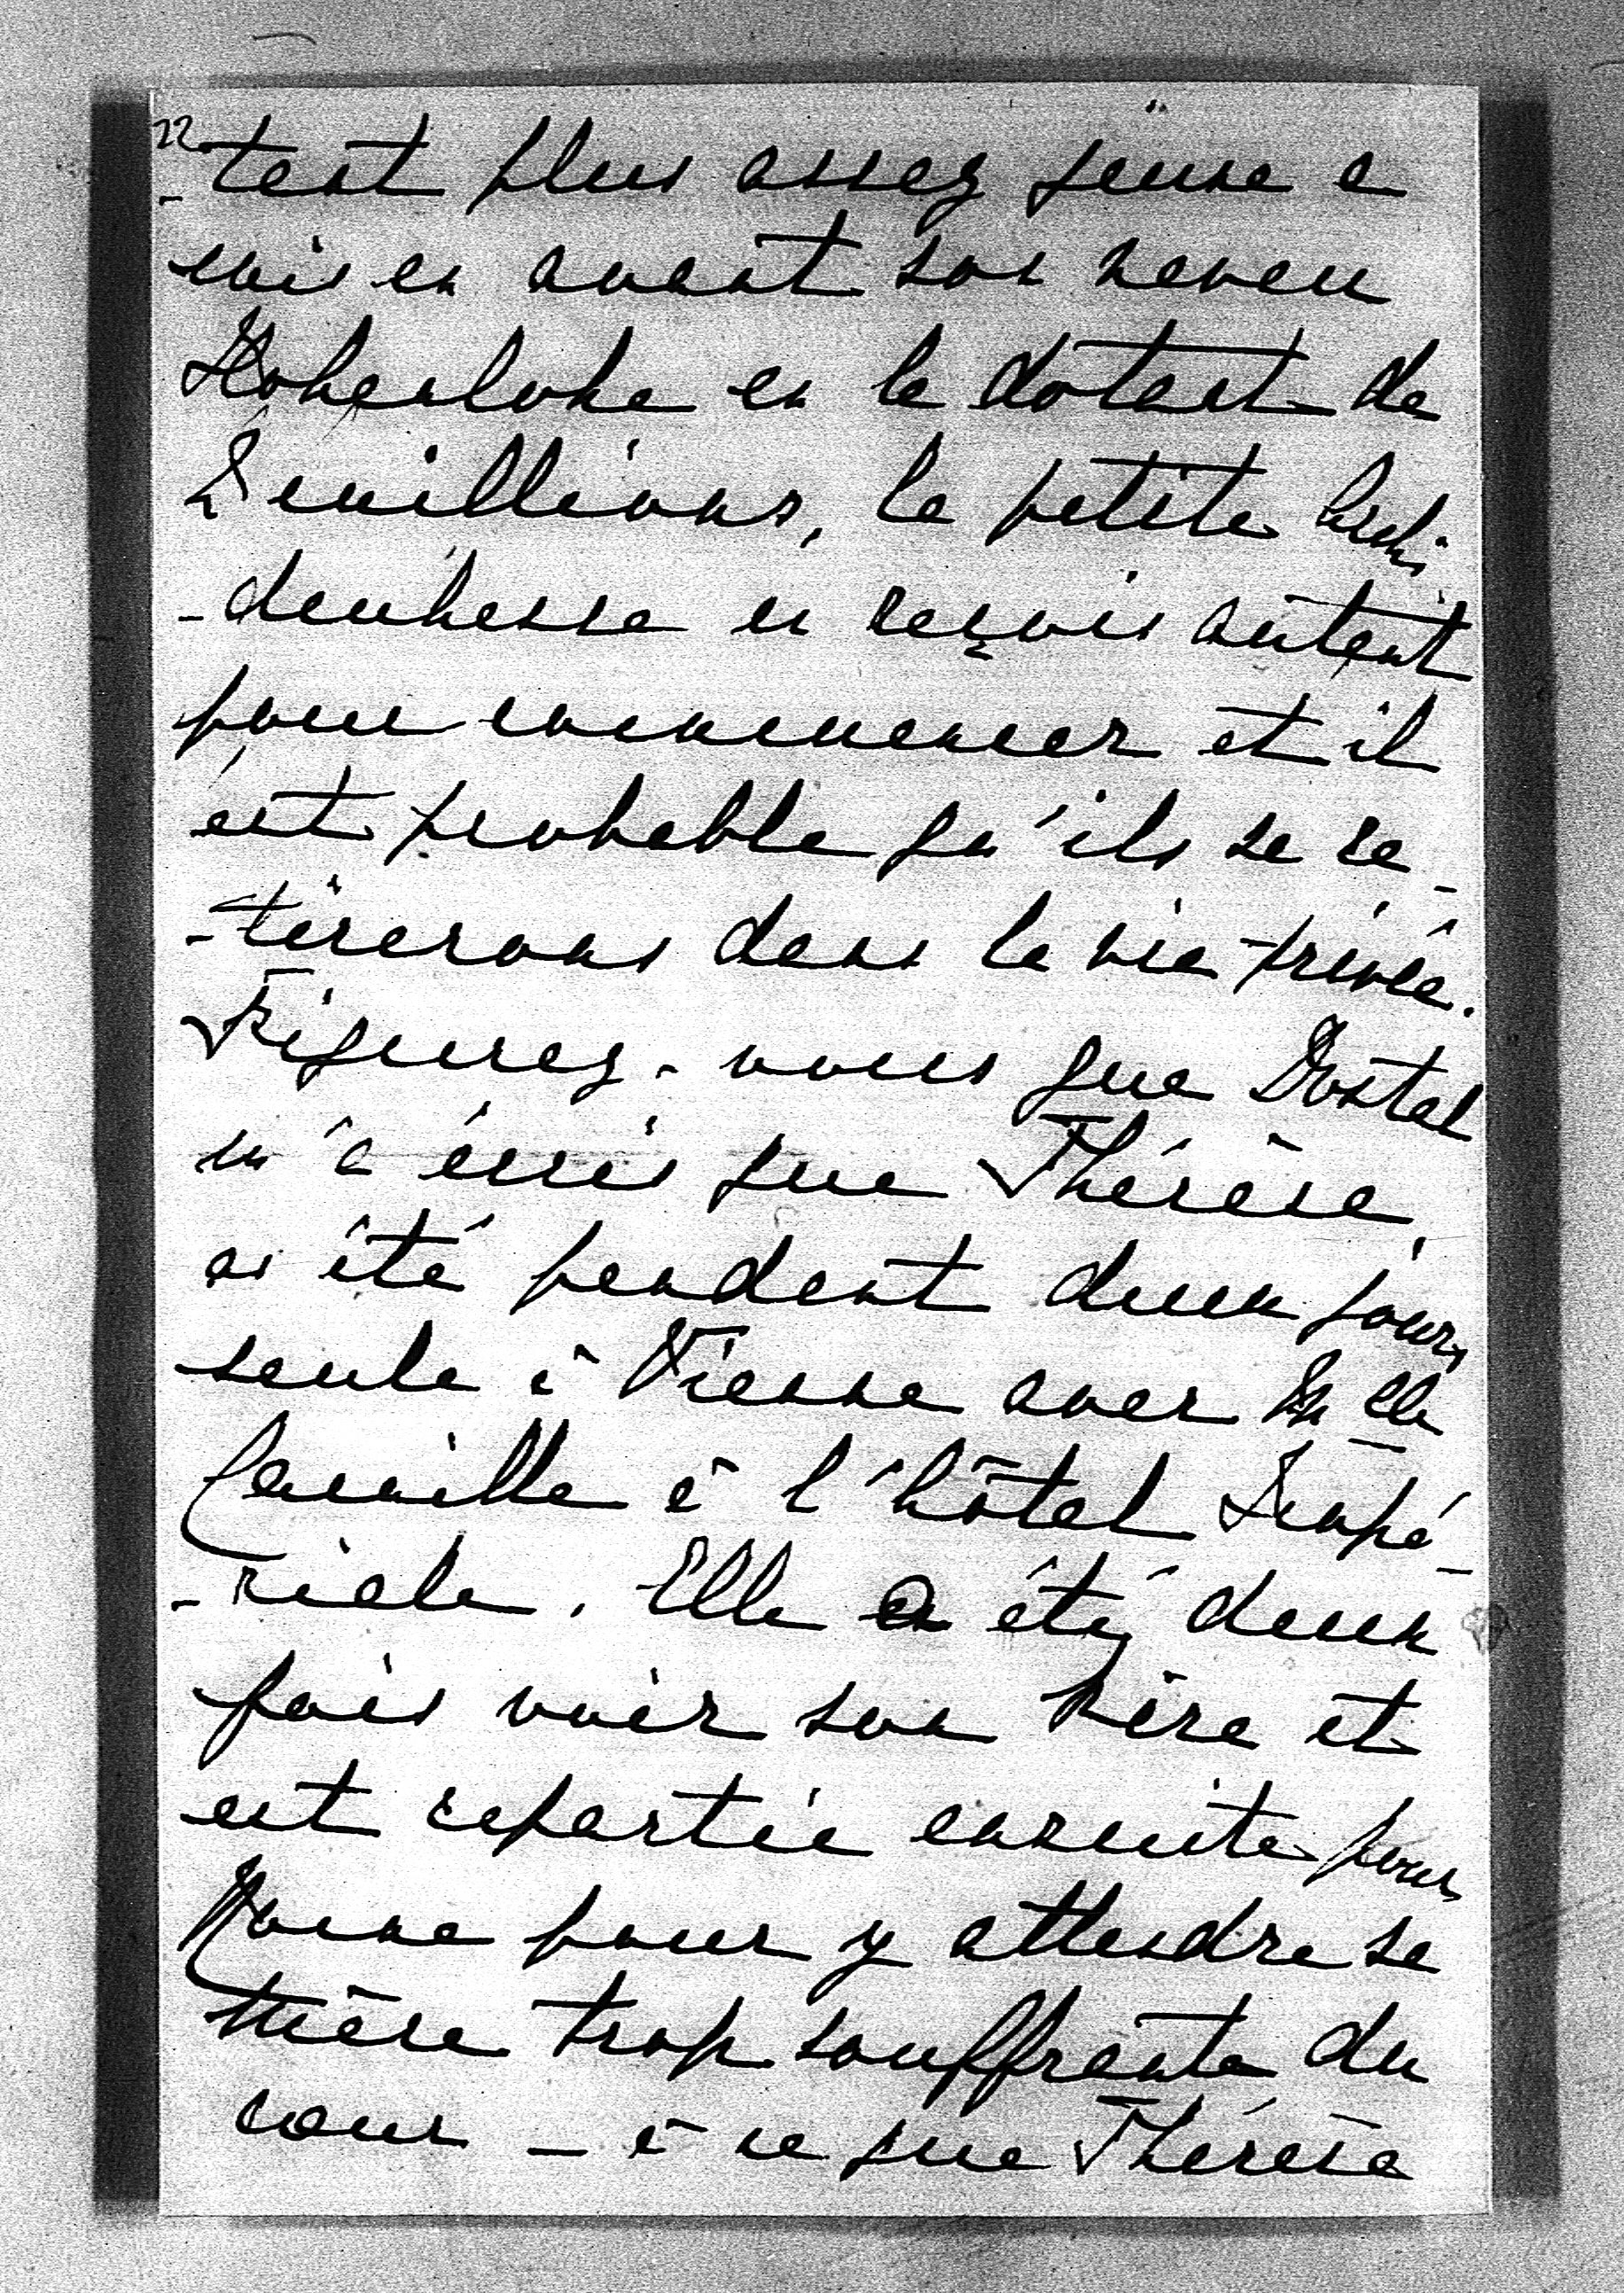 22
-tant plus assez jeune a
mis en avant son neveu
Hohenlohe en le dotant de
2 millions, la petite Archi
-duchesse en reçois autant
pour commencer et il
est probable qu'ils se re-
-tirerons dans la vie privée.
Figurez-vous que Dostal
m'a écris que Thérèse
as été pendant deux jours
seule à Vienne avec Mlle
Camille à l'hôtel Impé-
-riale. Elle a été deux
fois voir son Père et
est repartie ensuite pour
Rome pour y attendre sa
Mère trop souffrante du
cœur – à ce que Thérèse